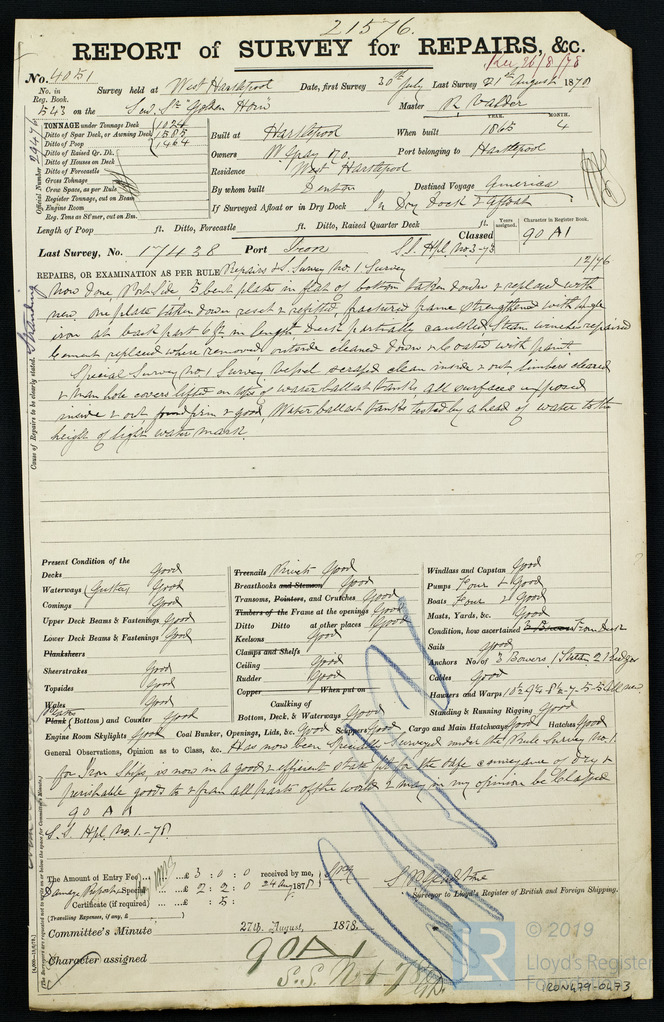 21576.
REPORT of SURVEY for REPAIRS, &c.
Rec 26/8/78
No. 4051 Survey held at West Hartlepool Date, first Survey 30th July Last Survey 21st August 1878
No. in Reg. Book.
543 on the Scw. Str "Golden Horn" Master R Walder
TONNAGE under Tonnage Deck 1024
Ditto of Spar Deck, or Awning Deck 1585
Ditto of Poop 1464
Ditto of Raised Qr. Dk.
Ditto of Houses on Deck
Ditto of Forecastle
Gross Tonnage
Crew Space, as per Rule
Register Tonnage, cut on Beam
Engine Room
Reg. Tons as St'mer, cut on Bm.
Official Number
Built at Hartlepool When built YEAR. 1865 MONTH. 4
Owners W. Gray & Co. Port belonging to Hartlepool
Residence West Hartlepool
By whom built Denton Destined Voyage America
If Surveyed Afloat or in Dry Dock In Dry Dock & afloat
Length of Poop ft. Ditto, Forecastle ft. Ditto, Raised Quarter Deck ft.
Years assigned. Character in Register Book.
Classed 90 A1
Last Survey, No. 17438 Port Iron S.S. Hpl. No. 3-73 12/76
REPAIRS, OR EXAMINATION AS PER RULE Repairs & S. Survey No. 1 Survey
Now done, Port side 5 bent plates in flat of bottom taken down & replaced with
new, one plate taken down reset & refitted, fractured frame strengthened with angle
iron at back part 6 ft. in length, deck partially caulked Steam winches repaired
Cement replaced where removed outside cleaned down & Coated with paint
Special Survey No 1 Survey Vessel scraped clean inside & out, limbers cleared
& Man hole covers lifted on tops of water ballast tanks, all surfaces exposed
inside & out found firm & good, Water ballast tanks tested by a head of water to the
height of light water mark.
Cause of Repairs to be clearly stated. Stranding
Present Condition of the
Decks Good
Waterways (Gutter) Good
Comings Good
Upper Deck Beams & Fastenings Good
Lower Deck Beams & Fastenings Good
Planksheers
Sheerstrakes Good
Topsides Good
Wales Good
Plank (Bottom) and Counter Good
Engine Room Skylights Good
Treenails Rivets Good
Breasthooks and Stemson Good
Transoms, Pointers, and Crutches Good
Timbers of the Frame at the openings Good
Ditto Ditto at other places Good
Keelsons Good
Clamps and Shelfs
Ceiling Good
Rudder Good
Copper When put on
Caulking of
Bottom, Deck, & Waterways Good
Coal Bunker, Openings, Lids, &c. Good Scuppers Good Cargo and Main Hatchways Good Hatches Good
Windlass and Capstan Good
Pumps Four & Good
Boats Four & Good
Masts, Yards, &c. Good
Condition, how ascertained From deck
Sails Good
Anchors No. of 3 Bowers 1 Stream 2 Kedges
Cables Good
Hawsers and Warps 10½ 9½ 8½-7-5-5 All new
Standing & Running Rigging Good
General Observations, Opinion as to Class, &c. Has now been Specially Surveyed under the Rule Survey No. 1.
for Iron Ships is now in a good & efficient state fit for the safe conveyance of dry &
perishable goods to & from all parts of the world & may in my opinion be Classed
90 A1
S.S. Hpl. No. 1.-78.
The Amount of Entry Fee ... £ 3 : 0 : 0 received by me,
Damage Report Special ... £ 2 : 2 : 0 24 Aug 1878
Certificate (if required) ... £ : 5 :
(Travelling Expenses, if any, £ )
Surveyor to Lloyd's Register of British and Foreign Shipping.
Committee's Minute 27th August, 1878.
Character assigned 90 A1
S.S. No 1 78
© 2019
LR
Lloyd's Register
RON479-0473